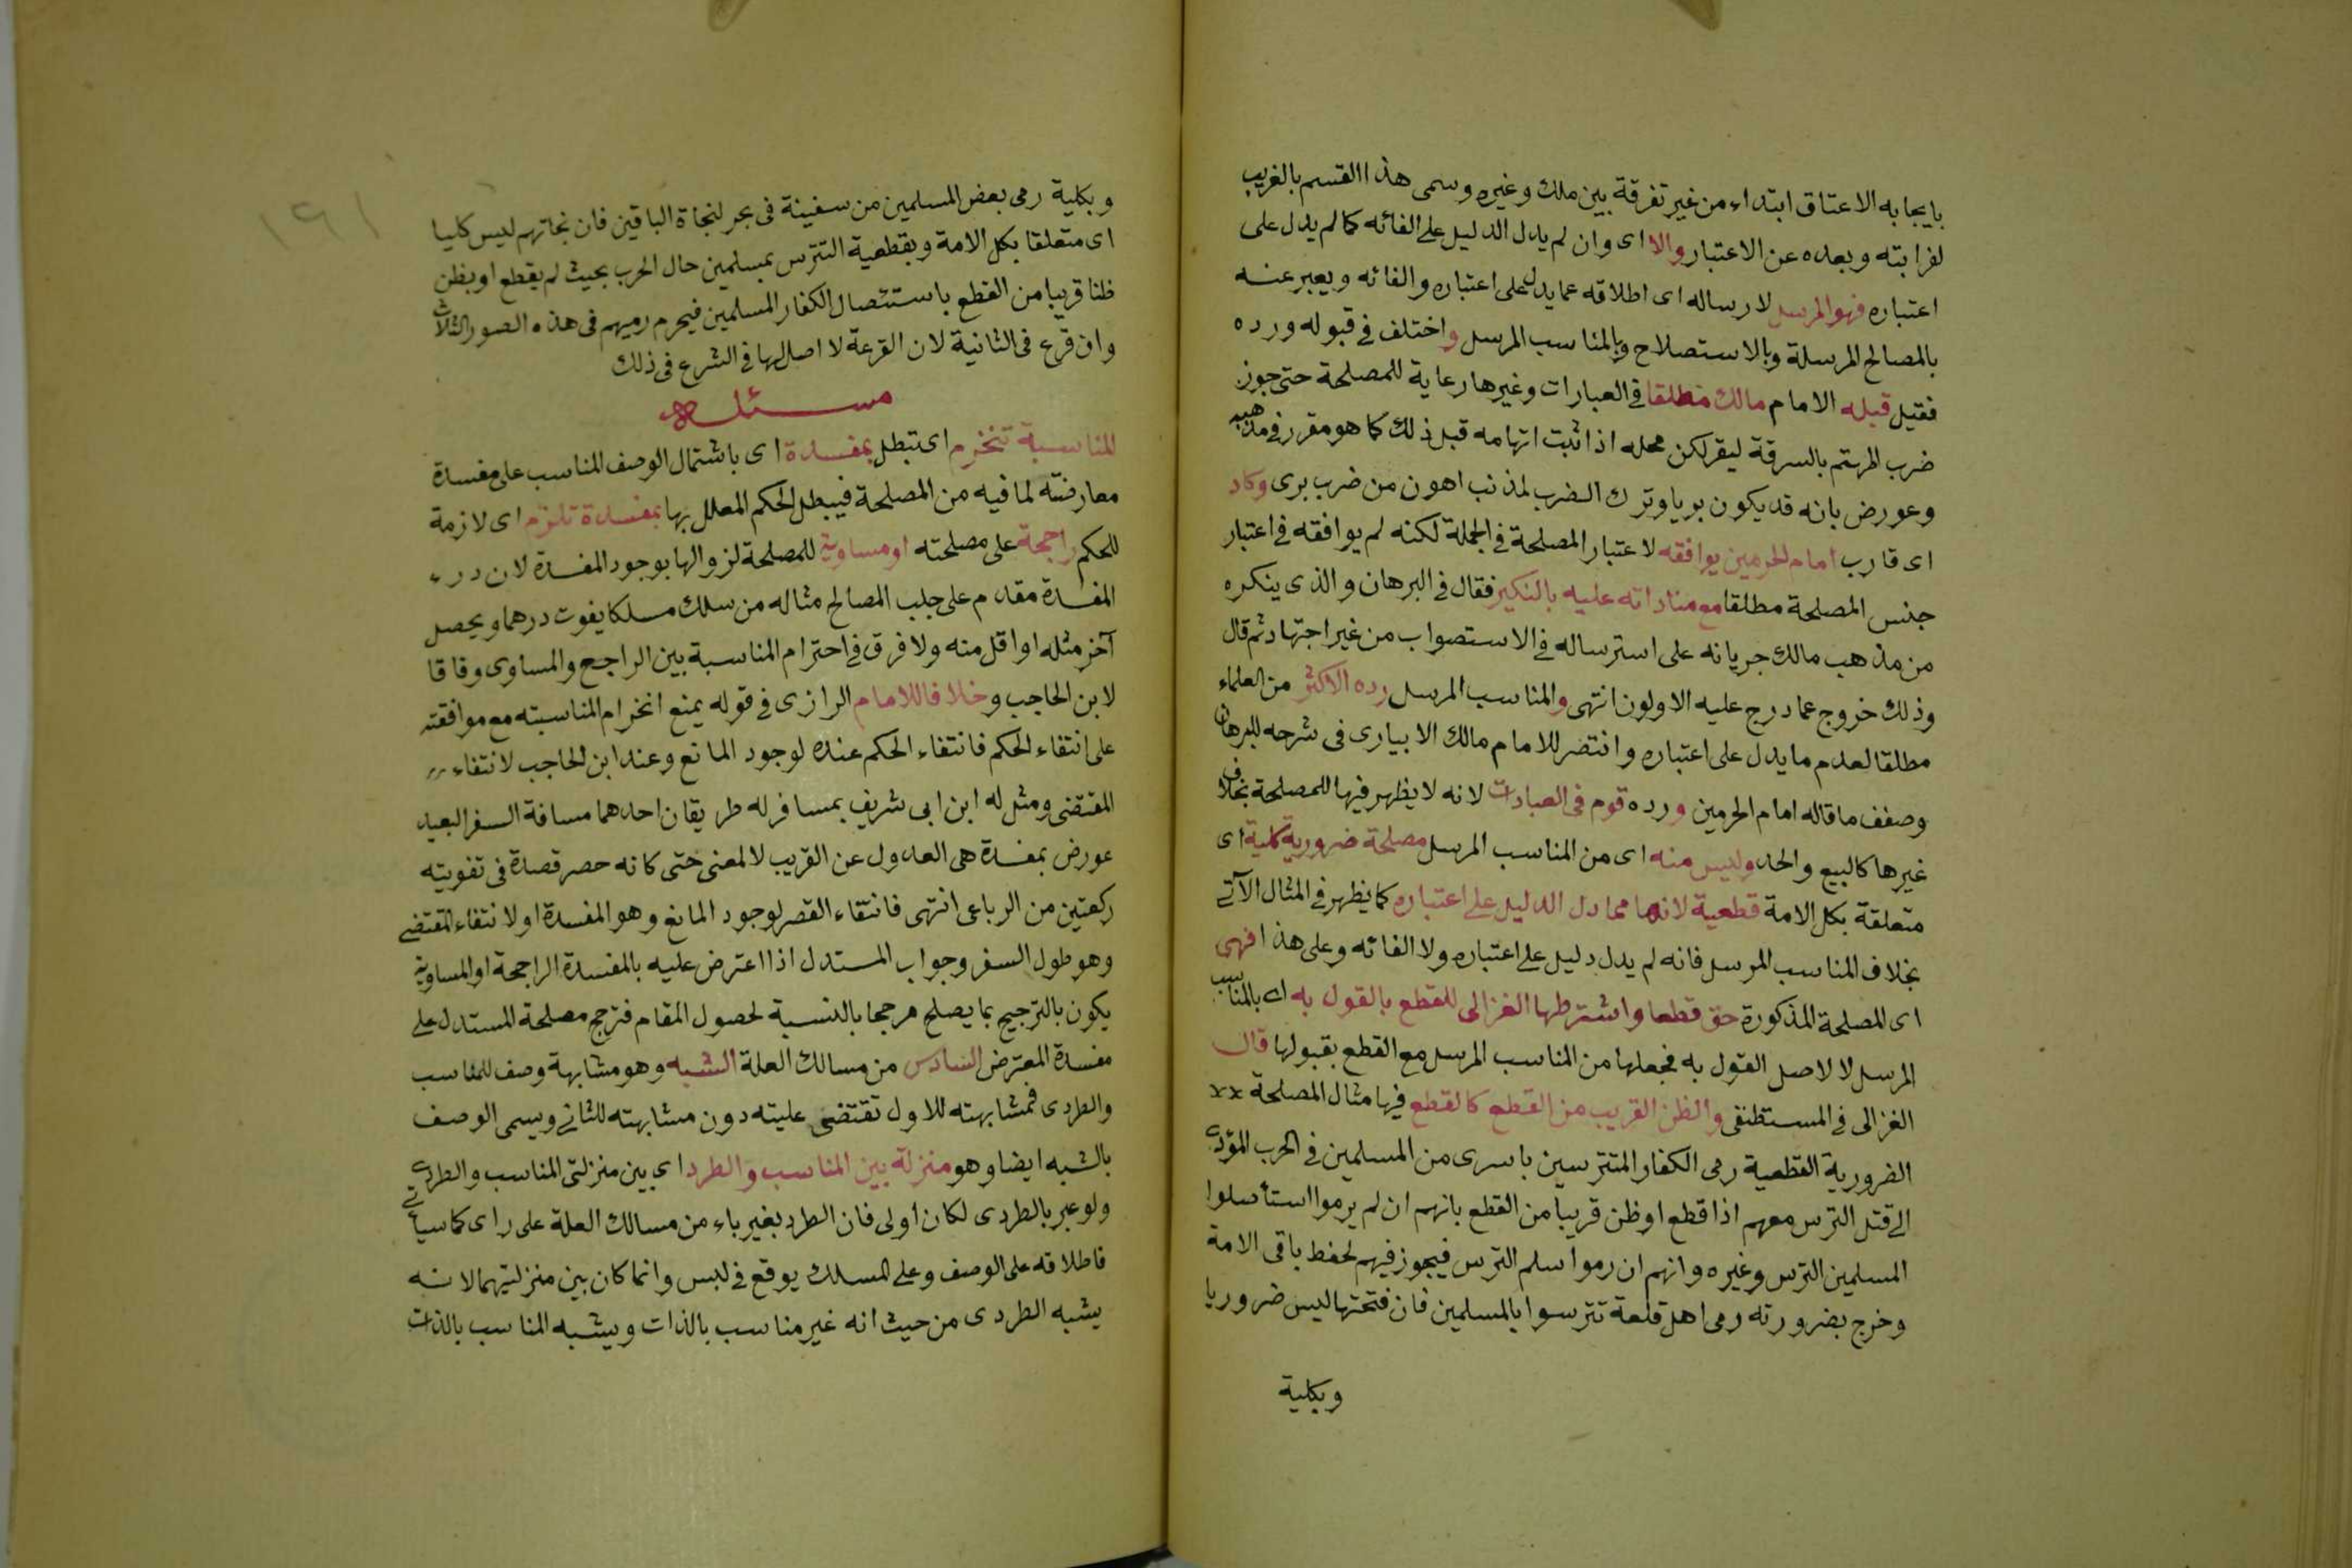 بايجابه الاعتاق ابتداء من غير تفرقة بين ملك وغيره وسمى هذا القسم بالغريب
لغرابته وبعده عن الاعتبار والا اى وان لم يدل الدليل على الغائه كما لم يدل على
اعتباره فهو المرسل لارساله اى اطلاقه عما يدل على اعتباره والغائه ويعبر عنه
بالمصالح المرسلة وبالاستصلاح وبالمناسب المرسل واختلف فى قبوله ورده
فقيل قبله الامام مالك مطلقا فى العبارات وغيرها رعاية للمصلحة حتى جوز
ضرب المتهم بالسرقة ليقر لكن محله اذا ثبت اتهامه قبل ذلك كما هو مقرر فى مذهبه
وعورض بانه قد يكون بريا وترك الضرب لمذنب اهون من ضرب برى وكاد
اى قارب امام الحرمين يوافقه لاعتبار المصلحة فى الجملة لكنه لم يوافقه فى اعتبار
جنس المصلحة مطلقا مع مناداته عليه بالنكير فقال فى البرهان والذى ينكره
من مذهب مالك جريانه على استرساله فى الاستصواب من غير اجتهاد ثم قال
وذلك خروج عما درج عليه الاولون انتهى والمناسب المرسل رده الاكثر من العلماء
مطلقا لعدم ما يدل على اعتباره وانتصر للامام مالك الابيارى فى شرحه للبرهان
وضعف ما قاله امام الحرمين ورده قوم فى العبادات لانه لا يظهر فيها للمصلحة بخلاف
غيرها كالبيع والحد وليس منه اى من المناسب المرسل مصلحة ضرورية كلية اى
متعلقة بكل الامة قطعية لانها مما دل الدليل على اعتباره كما يظهر فى المثال الآتى
بخلاف المناسب المرسل فانه لم يدل دليل على اعتباره ولا الغائه وعلى هذا فهى
اى المصلحة المذكورة حق قطعا واشترطها الغزالى للقطع بالقول به اى بالمناسب
المرسل لا لاصل القول به فجعلها من المناسب المرسل مع القطع بقبولها قال
الغزالى فى المستطنقى والظن القريب من القطع كالقطع فيها مثال المصلحة
الضرورية القطعية رمى الكفار المتترسين باسرى من المسلمين فى الحرب المؤدى
الى قتل الترس معهم اذا قطع او ظن قريبا من القطع بانهم ان لم يرموا استأصلوا
المسلمين الترس وغيره وانهم ان رموا سلم الترس فيجوز فيهم لحفظ باقى الامة
وخرج بضرورته رمى اهل قلعة تترسوا بالمسلمين فان فتحتها ليس ضروريا
وبكلية
١٩١
وبكلية رمى بعض المسلمين من سفينة فى بحر لنجاة الباقين فان نجاتهم ليس كليا
اى متعلقا بكل الامة وبقطعية التترس بمسلمين حال الحرب بحيث لم يقطع او يظن
ظنا قريبا من القطع باستئصال الكفار المسلمين فيحرم رميهم فى هذه الصور الثلاث
وان قرع فى الثانية لان القرعة لا اصل لها فى الشرع فى ذلك
مسئلة
المناسبة تنخرم اى تبطل بمفسدة اى باشتمال الوصف المناسب على مفسدة
معارضته لما فيه من المصلحة فيبطل الحكم المعلل بها بمفسدة تلزم اى لازمة
للحكم راجحة على مصلحته او مساوية للمصلحة لزوالها بوجود المفسدة لان درء
المفسدة مقدم على جلب المصالح مثاله من سلك مسلكا يفوت درهما ويحصل
آخر مثله او اقل منه ولا فرق فى احترام المناسبة بين الراجح والمساوى وفاقا
لابن الحاجب وخلافا للامام الرازى فى قوله يمنع انخرام المناسبته مع موافقته
على انتفاء الحكم فانتفاء الحكم عنده لوجود المانع وعند ابن الحاجب لانتفاء
المقتضى ومثل له ابن ابى شريف بمسافر له طريقان احدهما مسافة السفر البعيد
عورض بمفسدة هى العدول عن القريب لا لمعنى حتى كانه حصر قصدة فى تفويته
ركعتين من الرباعى انتهى فانتقاء القصر لوجود المانع وهو المفسدة او لانتفاء المقتضى
وهو طول السفر وجواب المستدل اذا اعترض عليه بالمفسدة الراجحة او المساوية
يكون بالترجيح بما يصلح مرجحا بالنسبة لحصول المقام فترجح مصلحة المستدل على
مفسدة المعترض السادس من مسالك العلة الشبه وهو مشابهة وصف للمناسب
والطردى فمشابهته للاول تقتضى عليته دون مشابهته للثانى ويسمى الوصف
بالشبه ايضا وهو منزلة بين المناسب والطرد اى بين منزلتى المناسب والطردى
ولو عبر بالطردى لكان اولى فان الطرد بغير ياء من مسالك العلة على راى كما سيأتى
فاطلاقه على الوصف وعلى المسلك يوقع فى لبس وانما كان بين منزلتيهما لانه
يشبه الطردى من حيث انه غير مناسب بالذات ويشبه المناسب بالذات